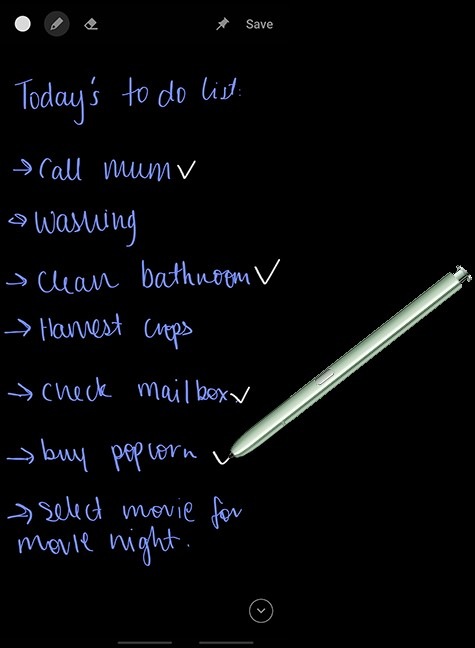 Save
Today's to do list:
→ Call mum ✓
→ Washing
→ Clean bathroom ✓
→ Harvest crops
→ Check mailbox ✓
→ buy popcorn ✓
→ Select movie for
movie night.